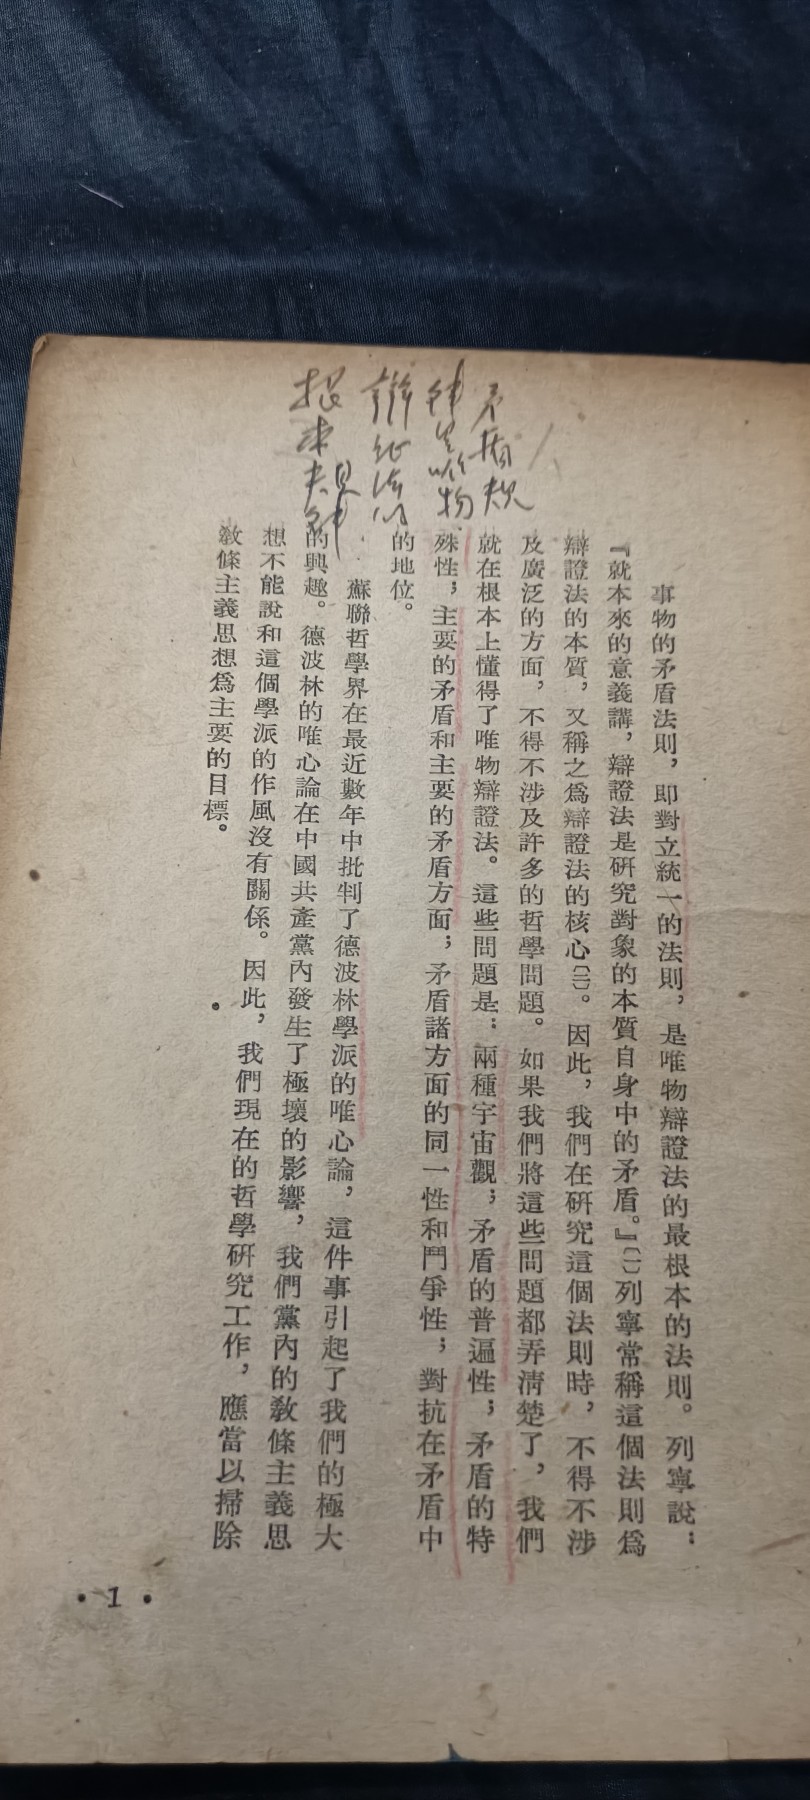 矛盾規
律是唯物
辯証法的
根本規律
事物的矛盾法則，即對立統一的法則，是唯物辯證法的最根本的法則。列寧說：
『就本來的意義講，辯證法是研究對象的本質自身中的矛盾。』〔一〕列寧常稱這個法則爲
辯證法的本質，又稱之爲辯證法的核心〔二〕。因此，我們在研究這個法則時，不得不涉
及廣泛的方面，不得不涉及許多的哲學問題。如果我們將這些問題都弄清楚了，我們
就在根本上懂得了唯物辯證法。這些問題是：兩種宇宙觀；矛盾的普遍性；矛盾的特
殊性；主要的矛盾和主要的矛盾方面；矛盾諸方面的同一性和鬥爭性；對抗在矛盾中
的地位。
蘇聯哲學界在最近數年中批判了德波林學派的唯心論，這件事引起了我們的極大
的興趣。德波林的唯心論在中國共產黨內發生了極壞的影響，我們黨內的敎條主義思
想不能說和這個學派的作風沒有關係。因此，我們現在的哲學研究工作，應當以掃除
敎條主義思想爲主要的目標。
• 1 •